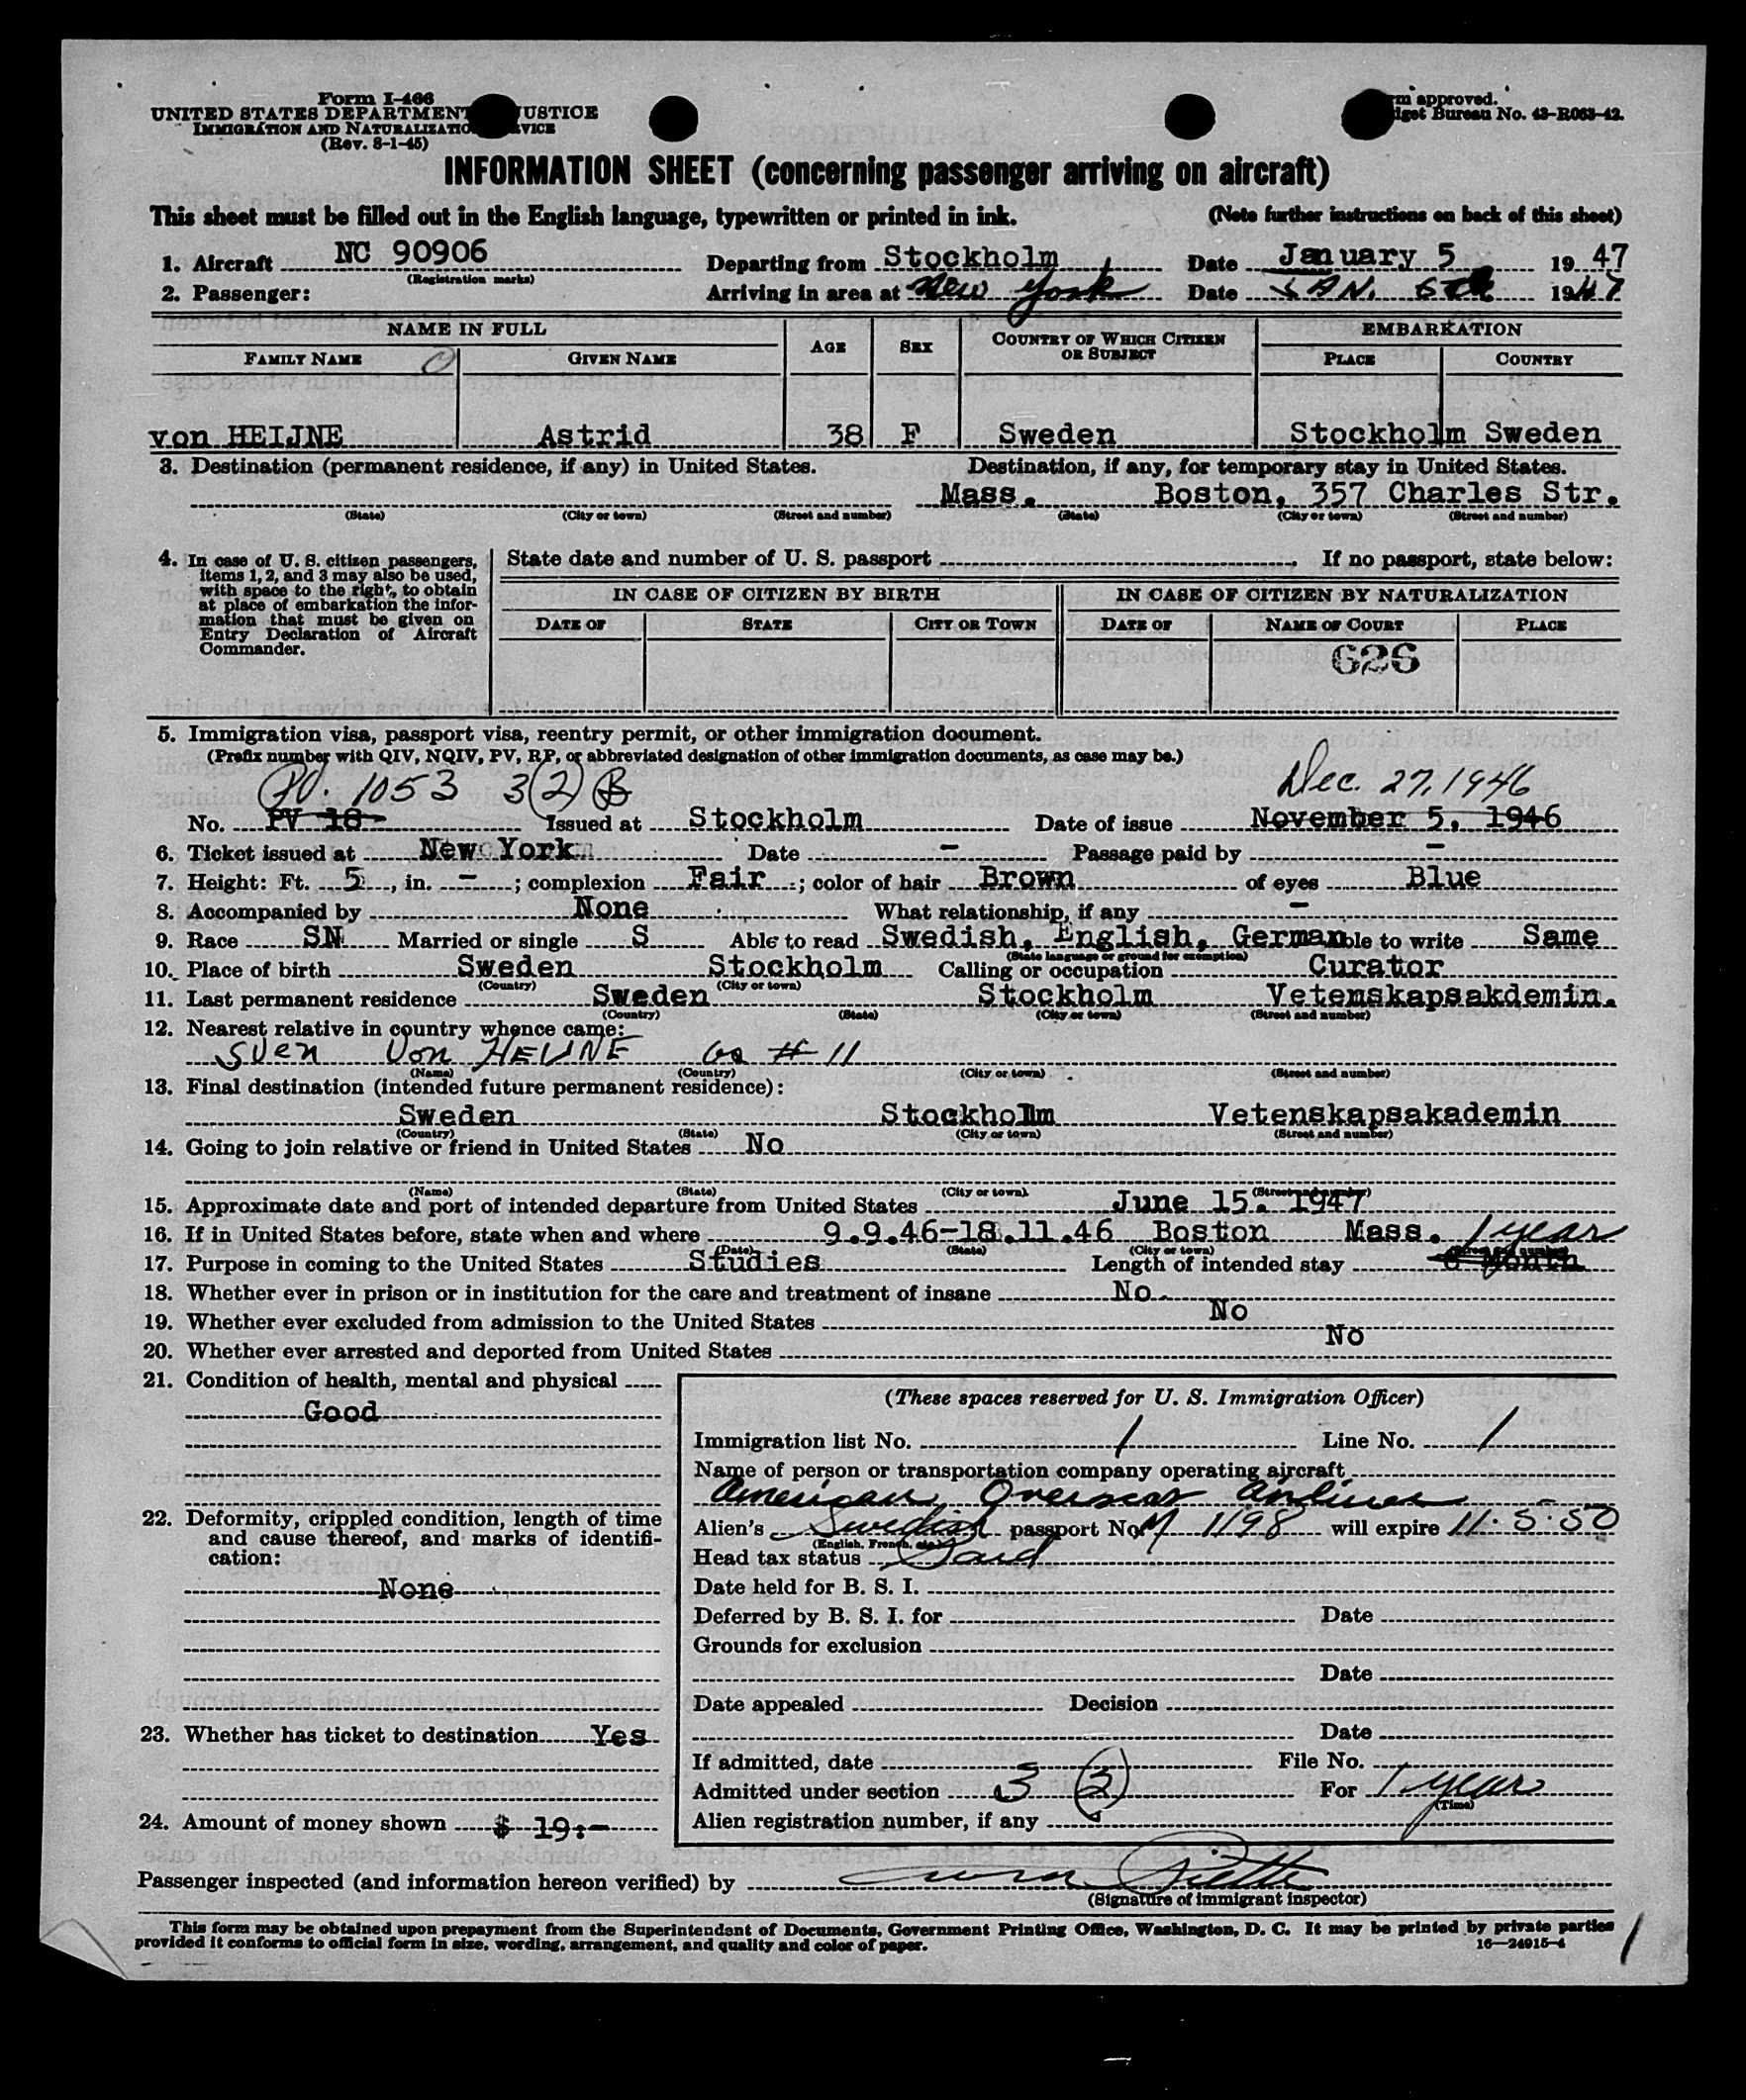 Form I-466
UNITED STATES DEPARTMENT USTICE
IMMIGRATION AND NATURALIZATIO VICE
(Rev. 8-1-45)
m approved.
get Bureau No. 43-R063-42.
INFORMATION SHEET (concerning passenger arriving on aircraft)
This sheet must be filled out in the English language, typewritten or printed in ink. (Note further instructions on back of this sheet)
1. Aircraft NC 90906 Departing from Stockholm Date January 5 19 47
(Registration marks)
2. Passenger: Arriving in area at New York Date JAN. 6th 1947
NAME IN FULL AGE SEX COUNTRY OF WHICH CITIZEN OR SUBJECT EMBARKATION
FAMILY NAME GIVEN NAME PLACE COUNTRY
von HEIJNE Astrid 38 F Sweden Stockholm Sweden
3. Destination (permanent residence, if any) in United States. Destination, if any, for temporary stay in United States.
Mass. Boston, 357 Charles Str.
(State) (City or town) (Street and number) (State) (City or town) (Street and number)
4. In case of U. S. citizen passengers,
items 1, 2, and 3 may also be used,
with space to the right, to obtain
at place of embarkation the infor-
mation that must be given on
Entry Declaration of Aircraft
Commander.
State date and number of U. S. passport . If no passport, state below:
IN CASE OF CITIZEN BY BIRTH IN CASE OF CITIZEN BY NATURALIZATION
DATE OF STATE CITY OR TOWN DATE OF NAME OF COURT PLACE
626
5. Immigration visa, passport visa, reentry permit, or other immigration document.
(Prefix number with QIV, NQIV, PV, RP, or abbreviated designation of other immigration documents, as case may be.)
PV. 1053 3(2) B Dec. 27, 1946
No. PV 18- Issued at Stockholm Date of issue November 5, 1946
6. Ticket issued at New York Date - Passage paid by -
7. Height: Ft. 5, in. -; complexion Fair; color of hair Brown of eyes Blue
8. Accompanied by None What relationship, if any -
9. Race SN Married or single S Able to read Swedish, English, German ble to write Same
(State language or ground for exemption)
10. Place of birth Sweden Stockholm Calling or occupation Curator
(Country) (City or town)
11. Last permanent residence Sweden Stockholm Vetenskapsakdemin.
(Country) (State) (City or town) (Street and number)
12. Nearest relative in country whence came:
Sven Von HEIJNE as # 11
(Name) (Country) (City or town) (Street and number)
13. Final destination (intended future permanent residence):
Sweden Stockholm Vetenskapsakademin
(Country) (State) (City or town) (Street and number)
14. Going to join relative or friend in United States No
(Name) (State) (City or town) (Street and number)
15. Approximate date and port of intended departure from United States June 15. 1947
16. If in United States before, state when and where 9.9.46-18.11.46 Boston Mass. 1 year
(Date) (State) (City or town) (Street and number)
17. Purpose in coming to the United States Studies Length of intended stay 6 Month
18. Whether ever in prison or in institution for the care and treatment of insane No.
19. Whether ever excluded from admission to the United States No
20. Whether ever arrested and deported from United States No
21. Condition of health, mental and physical
Good
22. Deformity, crippled condition, length of time
and cause thereof, and marks of identifi-
cation:
None
23. Whether has ticket to destination Yes
24. Amount of money shown $ 19:-
(These spaces reserved for U. S. Immigration Officer)
Immigration list No. 1 Line No. 1
Name of person or transportation company operating aircraft
American Overseas Airlines
Alien's Swedish passport No. M 1198 will expire 11-5-50
(English, French, etc.)
Head tax status Paid
Date held for B. S. I.
Deferred by B. S. I. for Date
Grounds for exclusion
Date
Date appealed Decision
Date
If admitted, date File No.
Admitted under section 3 (2) For 1 year
(Time)
Alien registration number, if any
Passenger inspected (and information hereon verified) by
(Signature of immigrant inspector)
This form may be obtained upon prepayment from the Superintendent of Documents, Government Printing Office, Washington, D. C. It may be printed by private parties
provided it conforms to official form in size, wording, arrangement, and quality and color of paper. 16—24915-4
1